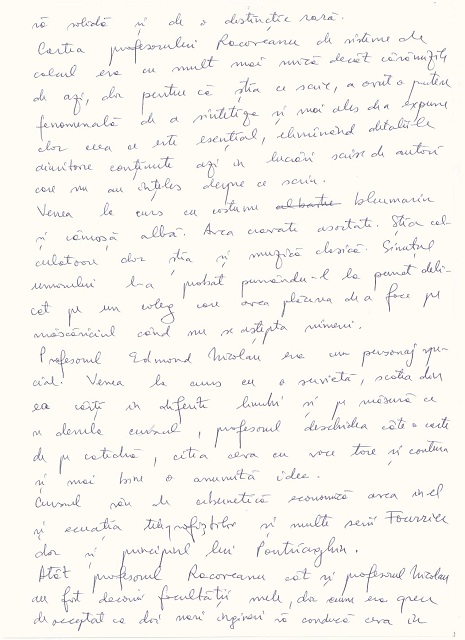 ră solidă și de o distincție rară.
Cartea profesorului Racoveanu de sisteme de
calcul era cu mult mai mică decât cărămizile
de azi, dar pentru că știa ce scrie, a avut o putere
fenomenală de a sintetiza și mai ales de a expune
clar ceea ce este esențial, eliminând detaliile
conținute azi în lucrări scrise de autori
care nu au înțeles despre ce scriu.
Venea la curs cu costume albastre bleumarin
și cămașă albă. Avea cravate asortate. Știa cal-
culatoare dar știa și muzică clasică. Simțul
umorului l-a probat punându-l la punct deli-
cat pe un coleg care avea plăcerea de a face pe
măscăriciul când nu se aștepta nimeni.
Profesorul Edmond Nicolau era un personaj spe-
cial. Venea la curs cu o servietă, scotea din
ea cărți în diferite limbi și pe măsură ce
se derula cursul, profesorul deschidea câte o carte
de pe catedră, citea ceva cu voce tare și contura
și mai bine o anumită idee.
Cursul său de cibernetică economică avea în el
și ecuația telegrafiștilor și multe serii Fourrier
dar și principiul lui Pontriaghin.
Atât profesorul Racoveanu cât și profesorul Nicolau
au fost decanii facultății mele, dar cum era greu
de acceptat ca doi mari ingineri să conducă ceva în